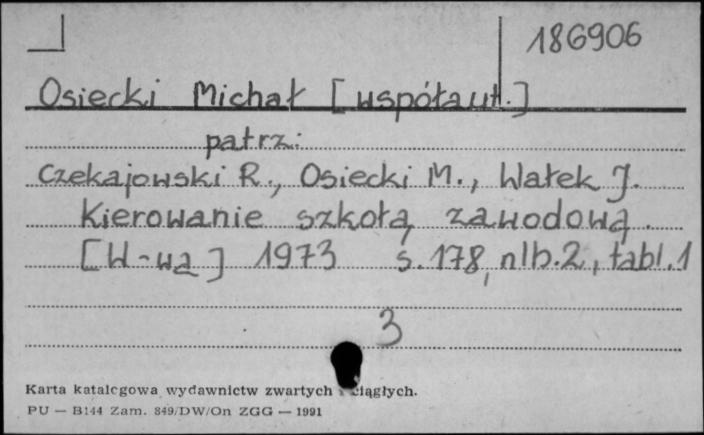 186906
Osiecki Michał [współaut.]
patrz:
Czekajowski R., Osiecki M., Wałek J.
Kierowanie szkołą zawodową.
[W-wa] 1973 s. 178, nlb. 2, tabl. 1
3
Karta katalogowa wydawnictw zwartych i ciągłych.
PU — B144 Zam. 849/DW/On ZGG — 1991